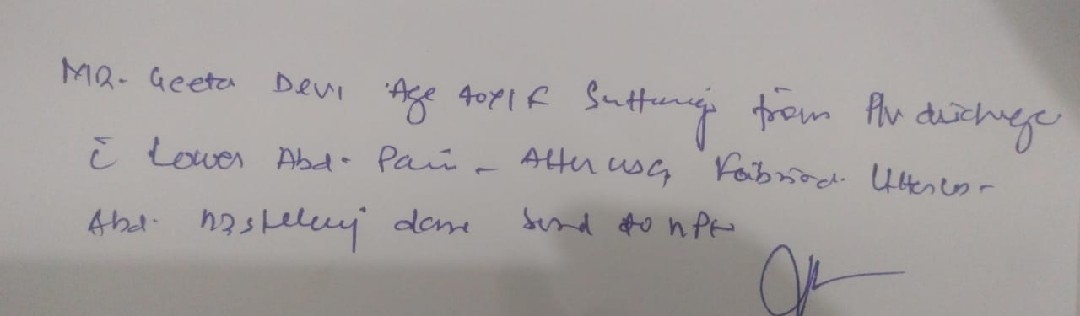 MR. Geeta Devi Age 40Y/F Suffering from P/V discharge
c̄ Lower Abd. Pain - After USG Fabriod Utterus -
Abd. done send to HPE